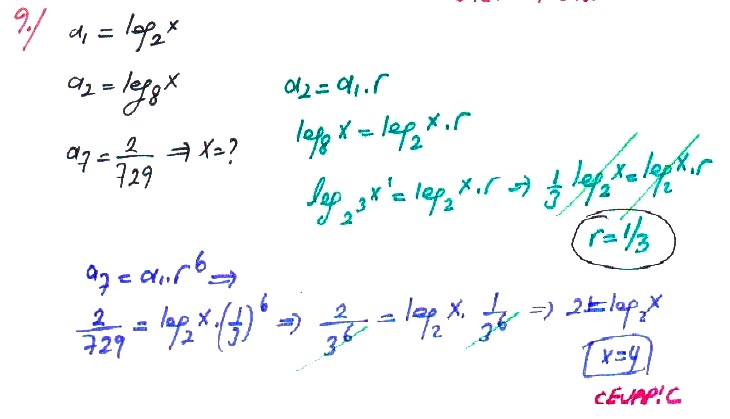 9.) a₁ = log₂x
a₂ = log₈x
a₂ = a₁.r
log₈x = log₂x.r
a₇ = 2/729 ⇒ x=?
log₂³x¹ = log₂x.r ⇒ 1/3 log₂x = log₂x.r
r = 1/3
a₇ = a₁.r⁶ ⇒
2/729 = log₂x.(1/3)⁶ ⇒ 2/3⁶ = log₂x. 1/3⁶ ⇒ 2 = log₂x
x=4
CEVAP:C